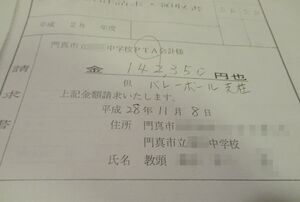 平成 2 年 年度
門真市 中学校PTA会計様
請求
金 142,350 円也
但 バレーボール 支柱
上記金額請求いたします。
平成 28 年 11 月 8 日
住所 門真市
門真市立 中学校
氏名 教頭